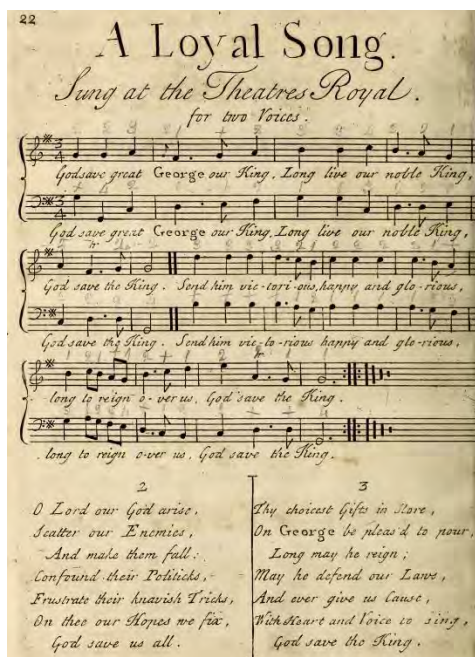 22
A Loyal Song.
Sung at the Theatres Royal.
for two Voices.
God save great George our King, Long live our noble King,
God save great George our King, Long live our noble King,
God save the King. Send him vic-tori-ous, happy and glo-rious,
God save the King. Send him vic-to-rious happy and glo-rious,
long to reign o-ver us, God save the King.
long to reign o-ver us, God save the King.
2
O Lord our God arise,
Scatter our Enemies,
And make them fall:
Confound their Politicks,
Frustrate their knavish Tricks,
On thee our Hopes we fix,
God save us all.
3
Thy choicest Gifts in store,
On George be pleas'd to pour,
Long may he reign;
May he defend our Laws,
And ever give us Cause,
With Heart and Voice to sing,
God save the King.